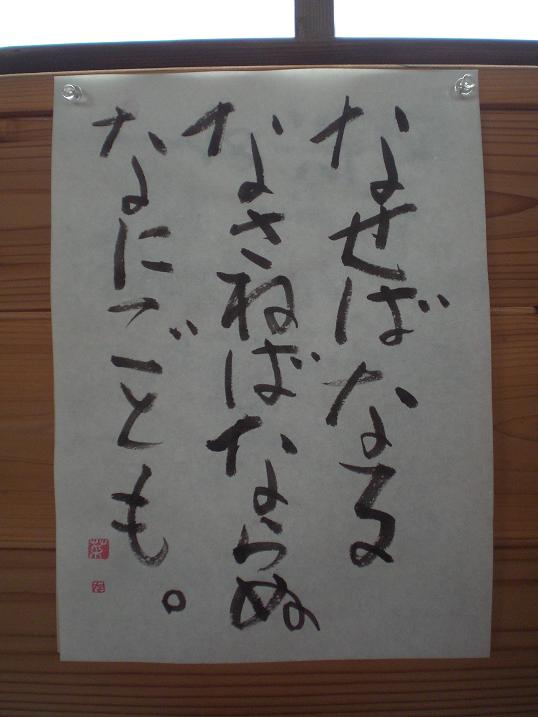 なせばなる
なさねばならぬ
なにごとも。